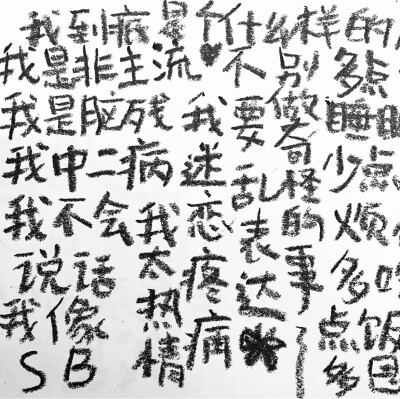 我到底是个什么样的
我是非主流
我是脑残
我中二病
我不会
说话
我像
SB
我太热情
我迷恋疼痛
不要乱表达
别做奇怪的事
多点
睡眠
少点
烦
多吃
点饭
多